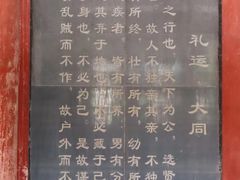 礼運 大同
之行也 天下為公 選賢
故人不独親其親 不独
有所終 壮有所用 幼有所
疾者 皆有所養 男有分
其弃于地也 不必藏于己
身也 不必為己 是故謀
乱賊而不作 故户外而不